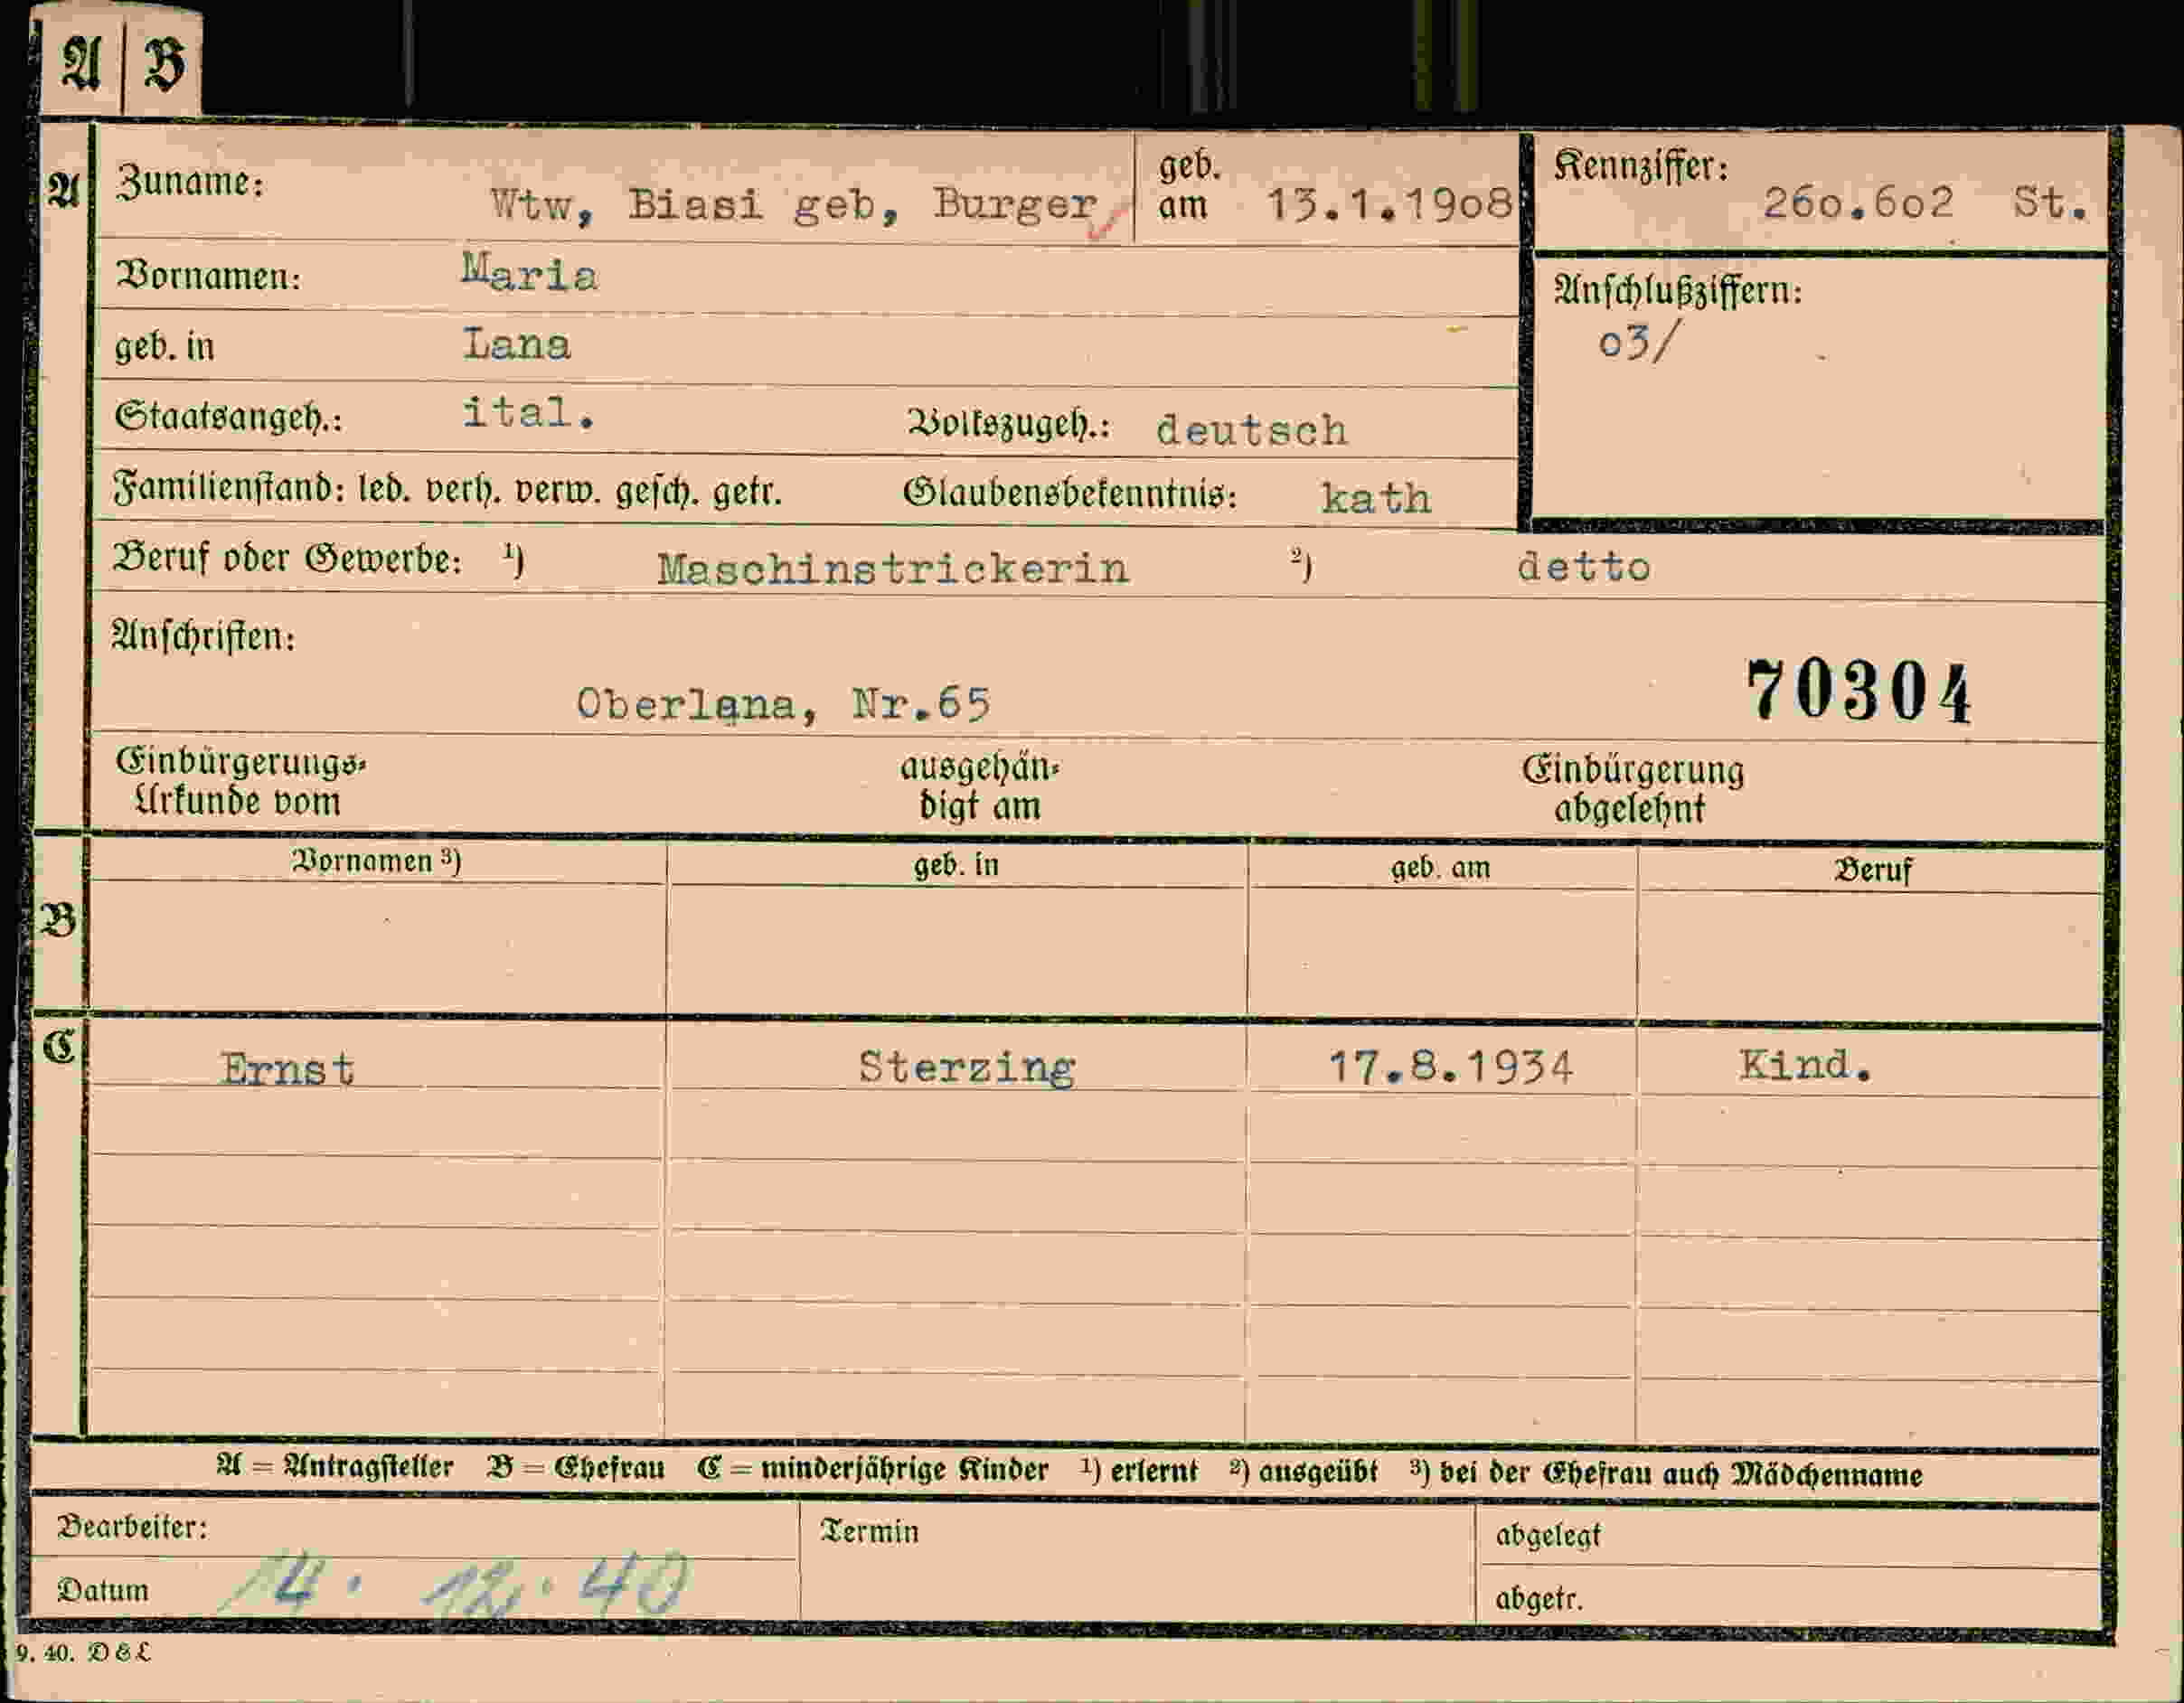 A B
A
Zuname: Wtw, Biasi geb, Burger geb. am 13.1.1908 Kennziffer: 260.602 St.
Vornamen: Maria
Anschlußziffern:
geb. in Lana o3/
Staatsangeh.: ital. Volkszugeh.: deutsch
Familienstand: led. verh. verw. gesch. getr. Glaubensbekenntnis: kath
Beruf oder Gewerbe: 1) Maschinstrickerin 2) detto
Anschriften:
Oberlana, Nr.65 70304
Einbürgerungs- ausgehän- Einbürgerung
Urkunde vom digt am abgelehnt
Vornamen 3) geb. in geb. am Beruf
B
C
Ernst Sterzing 17.8.1934 Kind.
A = Antragsteller B = Ehefrau C = minderjährige Kinder 1) erlernt 2) ausgeübt 3) bei der Ehefrau auch Mädchenname
Bearbeiter: Termin abgelegt
Datum 14. 12. 40 abgetr.
9. 40. DEL